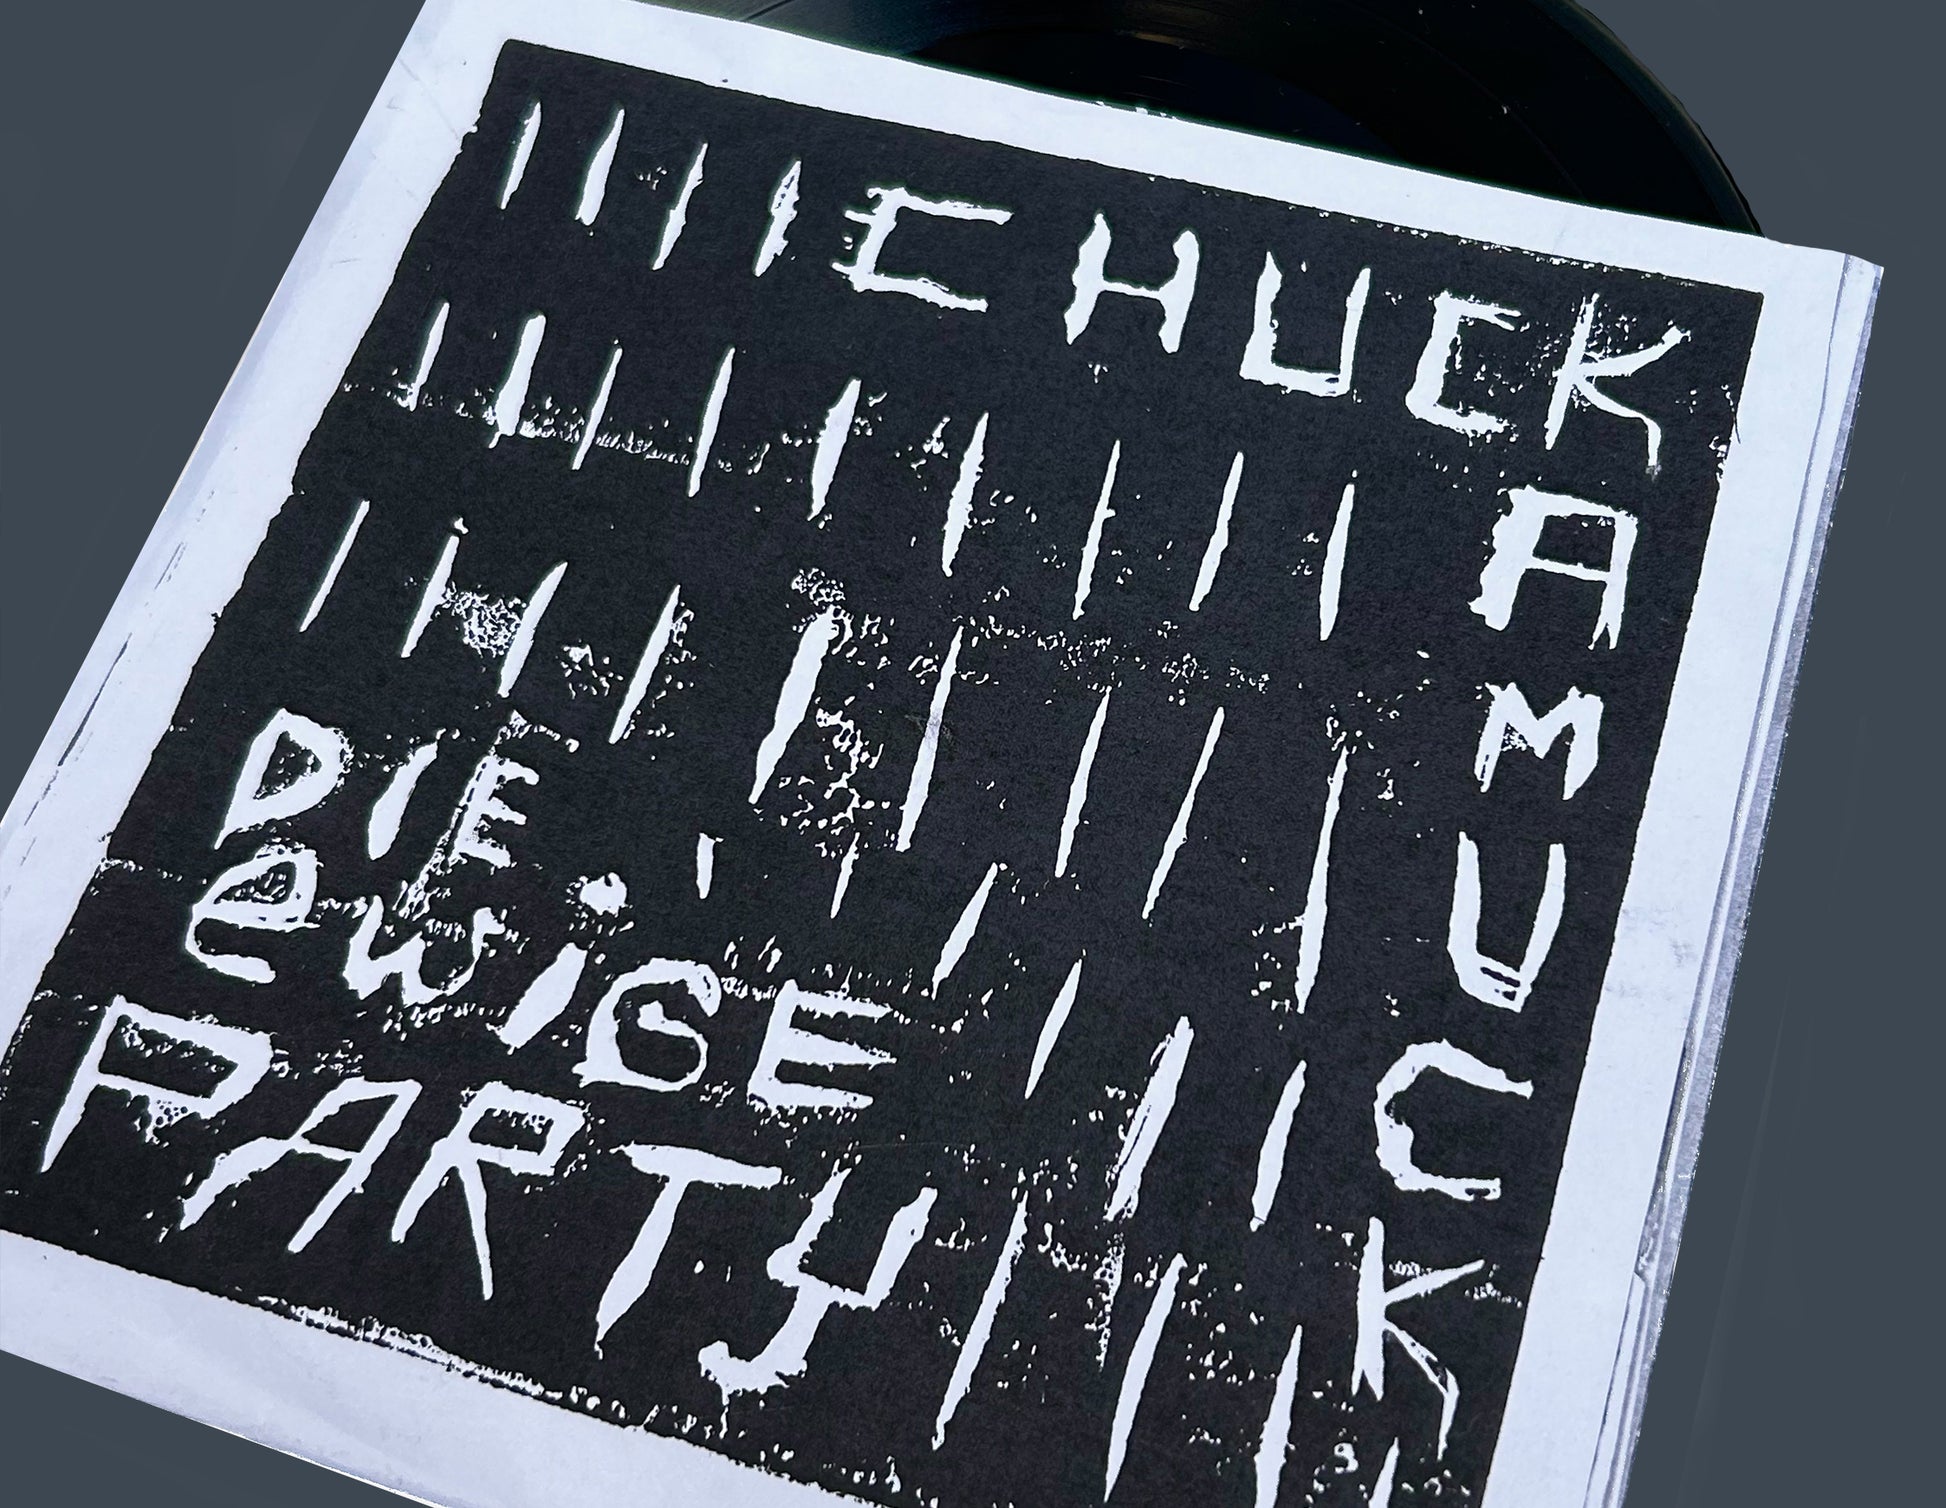 CHUCK
AMUCK
DIE
ewiGE
PARTY